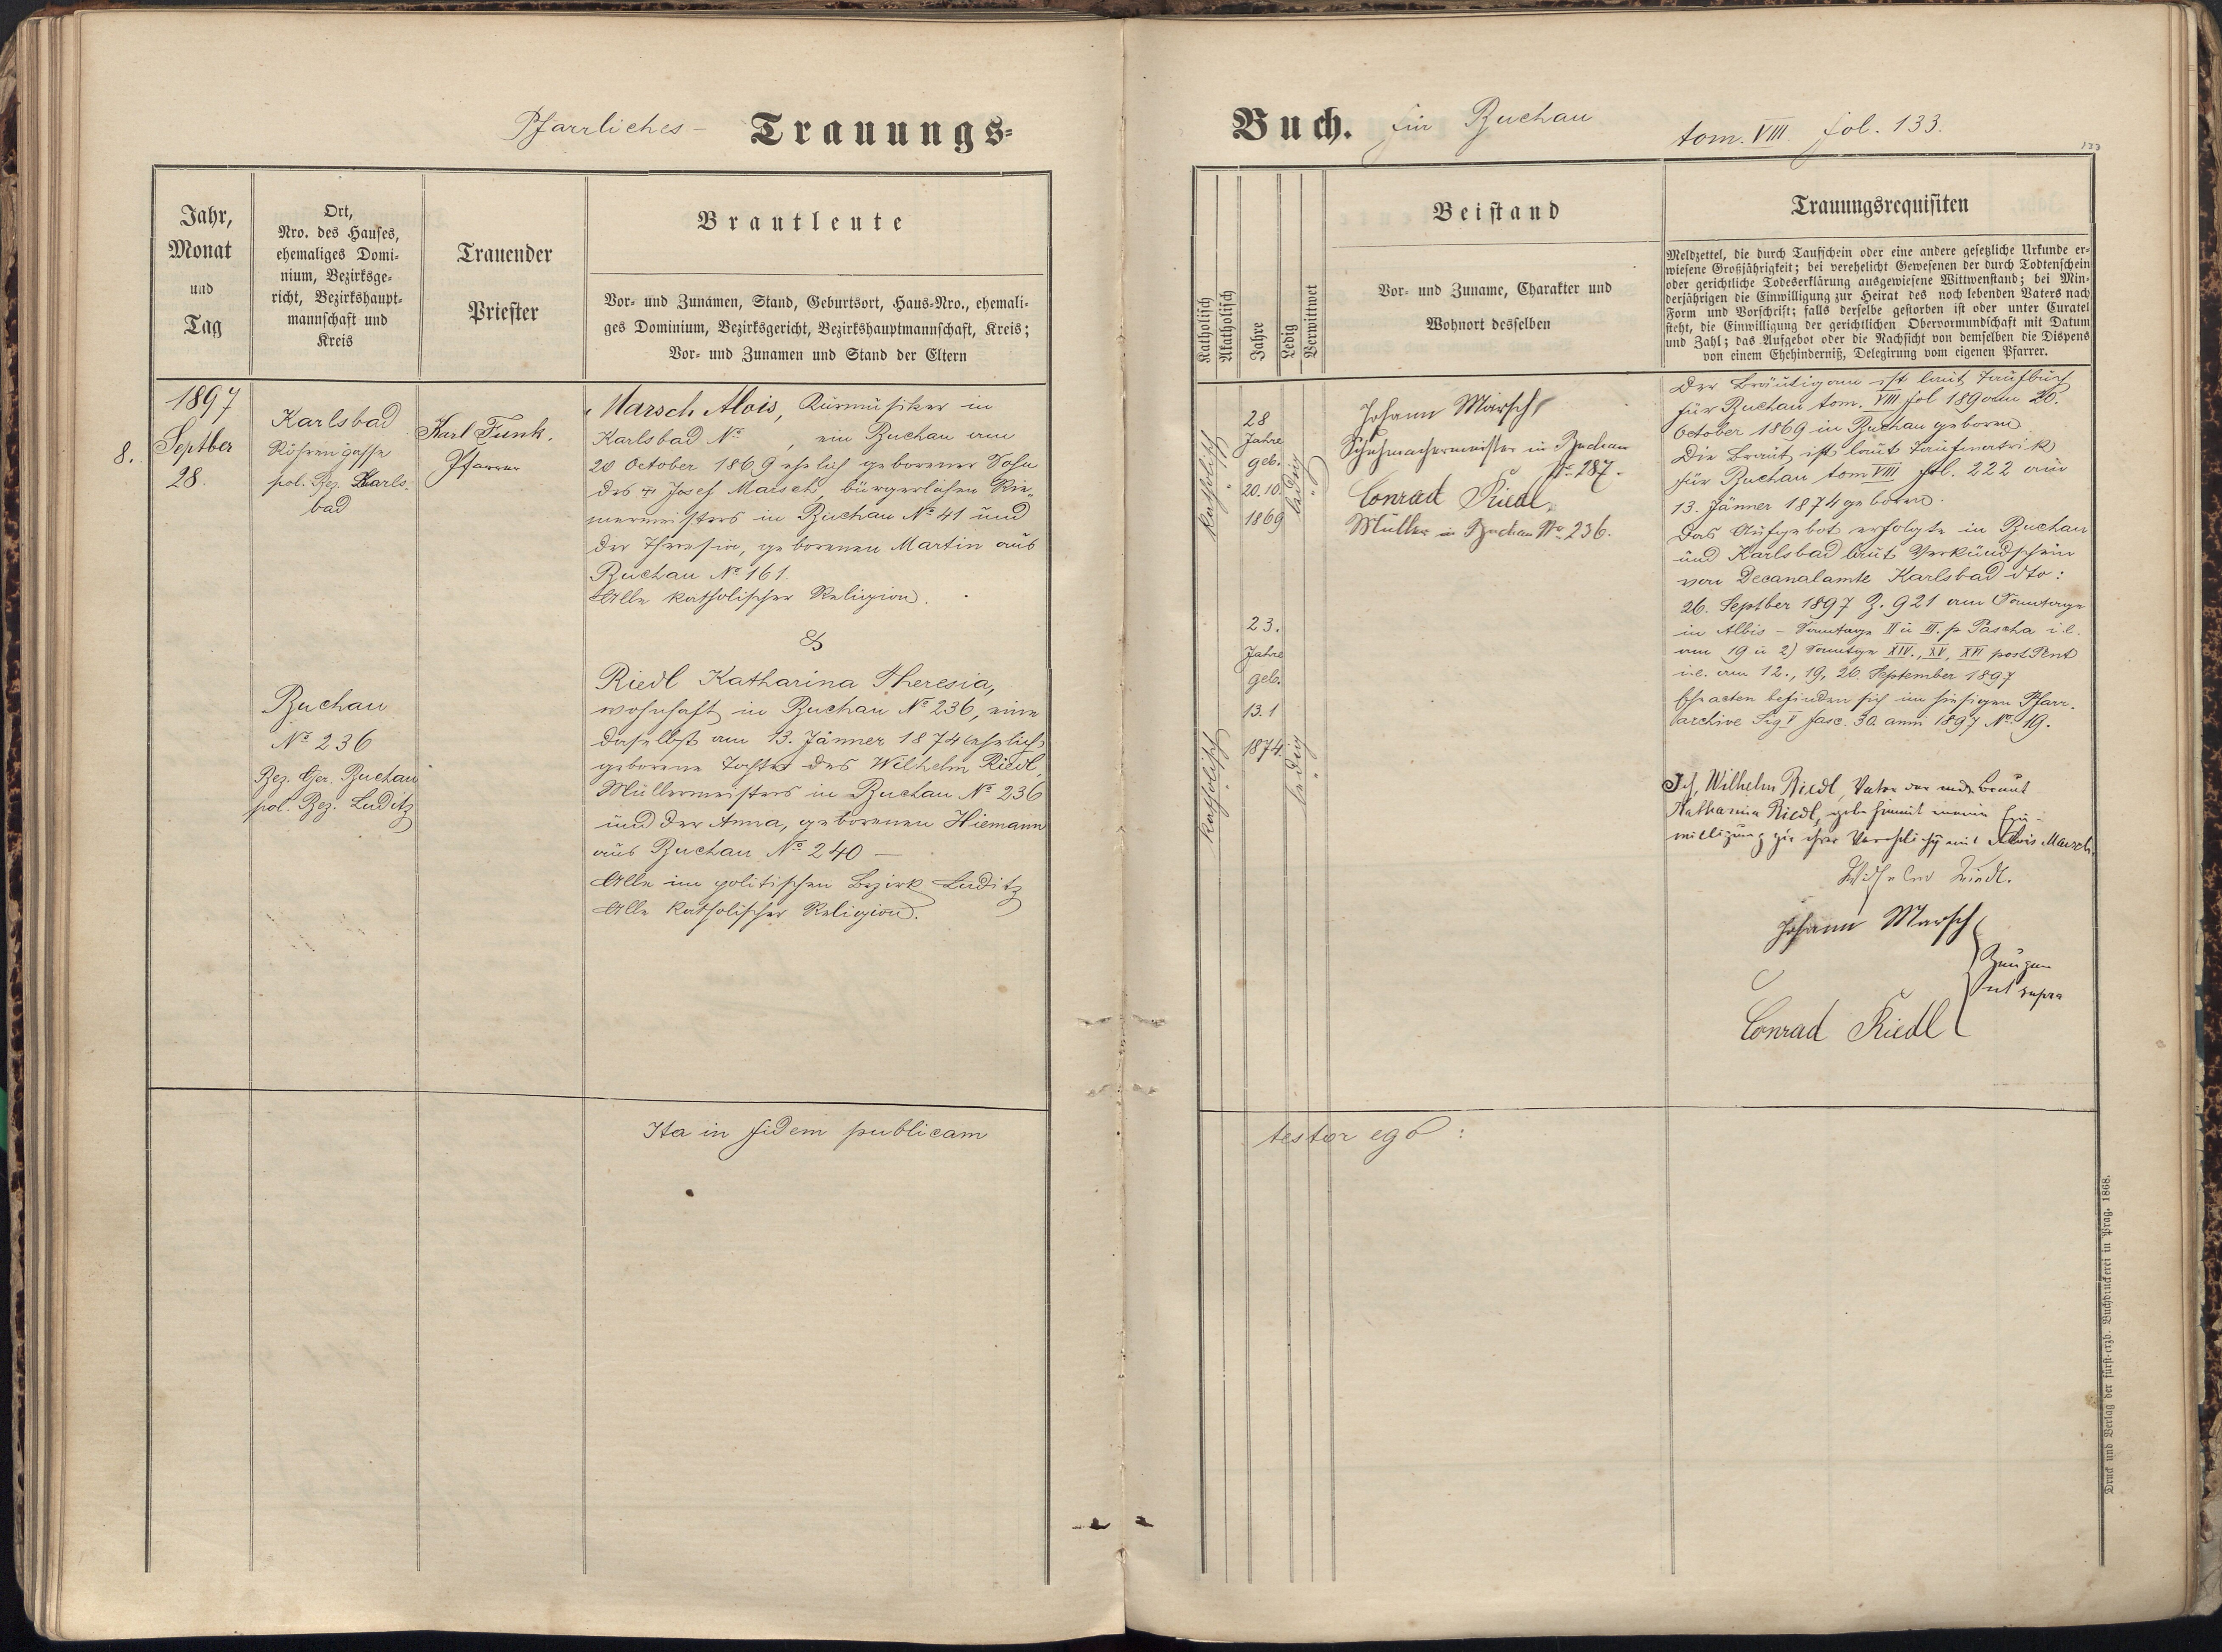 Pfarrliches - Trauungs=
Jahr,
Monat
und
Tag
Ort,
Nro. des Hauses,
ehemaliges Domi-
nium, Bezirksge-
richt, Bezirkshaupt-
mannschaft und
Kreis
Trauender
Priester
Brautleute
Vor- und Zunamen, Stand, Geburtsort, Haus-Nro., ehemali-
ges Dominium, Bezirksgericht, Bezirkshauptmannschaft, Kreis;
Vor- und Zunamen und Stand der Eltern
8.
1897
Septber
28.
Karlsbad
Röhrengasse
pol. Bez. Karls-
bad
Karl Funk.
Pfarrer
Marsch Alois, Kurmusiker in
Karlsbad No , ein Buchau am
20 October 1869 ehelich geborener Sohn
des Josef Marsch, bürgerlichen Rie-
mermeisters in Buchau No 41 und
der Theresia, geborenen Martin aus
Buchau No 161.
Alle katholischer Religion.
&
Buchau
No 236
Bez. Ger. Buchau
pol. Bez. Luditz
Riedl Katharina Theresia,
wohnhaft in Buchau No 236, eine
daselbst am 13. Jänner 1874 ehelich
geborene Tochter des Wilhelm Riedl,
Müllermeisters in Buchau No 236
und der Anna, geborenen Hiemann
aus Buchau No 240 —
Alle im politischen Bezirk Luditz
Alle katholischer Religion.
Ita in fidem publicam
Buch. für Buchau tom. VIII fol. 133.
133
Katholisch
Akatholisch
Jahre
Ledig
Verwittwet
Beistand
Vor- und Zuname, Charakter und
Wohnort desselben
Trauungsrequisiten
Meldzettel, die durch Taufschein oder eine andere gesetzliche Urkunde er-
wiesene Großjährigkeit; bei verehelicht Gewesenen der durch Todtenschein
oder gerichtliche Todeserklärung ausgewiesene Wittwenstand; bei Min-
derjährigen die Einwilligung zur Heirat des noch lebenden Vaters nach
Form und Vorschrift; falls derselbe gestorben ist oder unter Curatel
steht, die Einwilligung der gerichtlichen Obervormundschaft mit Datum
und Zahl; das Aufgebot oder die Nachsicht von demselben die Dispens
von einem Ehehinderniß, Delegirung vom eigenen Pfarrer.
katholisch
28
Jahre
geb.
20.10
1869
ledig
Johann Marsch
Schuhmachermeister in Buchau
No 287.
Conrad Riedl
Müller in Buchau No 236.
katholisch
23.
Jahre
geb.
13.1
1874.
ledig
Der Bräutigam ist laut Taufbuch
für Buchau tom. VIII fol 189 am 20.
October 1869 in Buchau geboren.
Die Braut ist laut Taufmatrik
für Buchau tom VIII fol. 222 am
13. Jänner 1874 geboren.
Das Aufgebot erfolgte in Buchau
und Karlsbad laut Verkündschein
von Decanalamte Karlsbad dto:
26. Septber 1897 Z. 921 am Sonntage
in Albis - Sonntage II u III. p. Pascha i.e.
am 19 u 2) Sonntge XIV., XV, XVI post Pent
i.e. am 12., 19, 26. September 1897
Eheacten befinden sich im hiesigen Pfarr-
archive Sig. V fasc. 30 anni 1897 No. 19.
Ich, Wilhelm Riedl, Vater der Braut
Katharina Riedl, gebe hiemit meine Ein-
willigung zu ihrer Verehelichg mit Alois Marsch.
Wilhelm Riedl.
Johann Marsch
Zeugen
ut supra
Conrad Riedl
testor ego :
Druck und Verlag der fürst-erzb. Buchdruckerei in Prag. 1868.